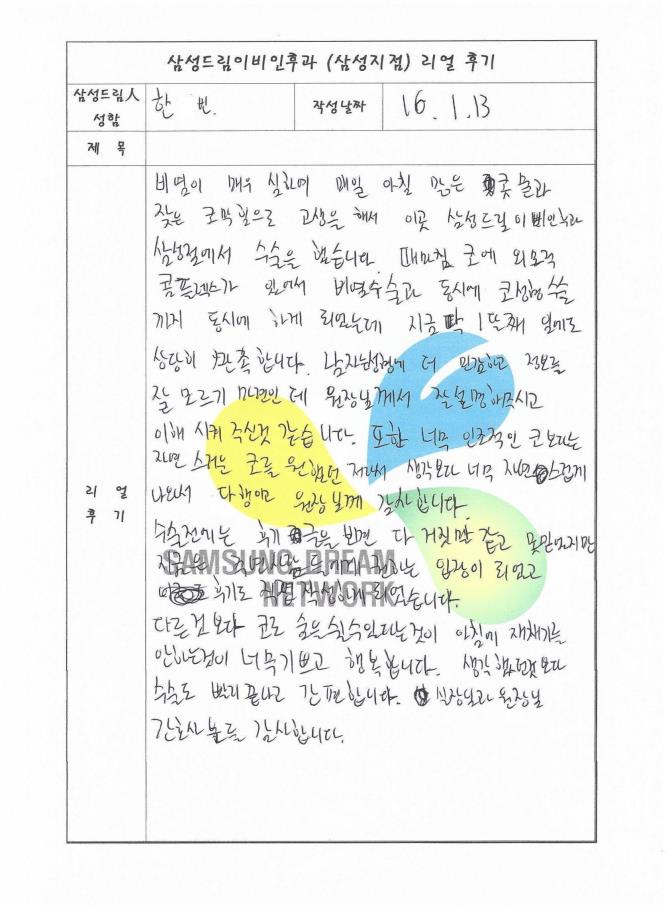 삼성드림이비인후과 (삼성지점) 리얼 후기
삼성드림人 성함
한 빈
작성날짜
16. 1. 13
제 목
리 얼 후 기
비염이 매우 심하여 매일 아침 맑은 콧물과
잦은 코막힘으로 고생을 해서 이곳 삼성드림이비인후과
삼성점에서 수술을 했습니다. 때마침 코에 외모적
콤플렉스가 있어서 비염수술과 동시에 코성형수술
까지 동시에 하게 되었는데 지금 딱 1달째 일에도
상당히 만족합니다. 남자분성형에 더 민감하고 정보를
잘 모르기 마련인데 원장님께서 잘설명해주시고
이해 시켜 주신것 같습니다. 또한 너무 인조적인 코보다는
자연 스러운 코를 원했던 저라서 생각보다 너무 자연스럽게
나와서 다행이고 원장님께 감사합니다.
수술전에는 후기글을 보면 다 거짓말 같고 못믿었지만
지금은 주변사람들에게 권하는 입장이 되었고
후기도 직접 작성하게 되었습니다.
다른것 보다 코로 숨은쉴수있다는것이 아침에 재채기를
안하는것이 너무기쁘고 행복합니다. 생각했던것보다
수술도 빨리 끝나고 간편합니다. 실장님과 원장님
간호사 분들 감사합니다.
SAMSUNG DREAM
NETWORK